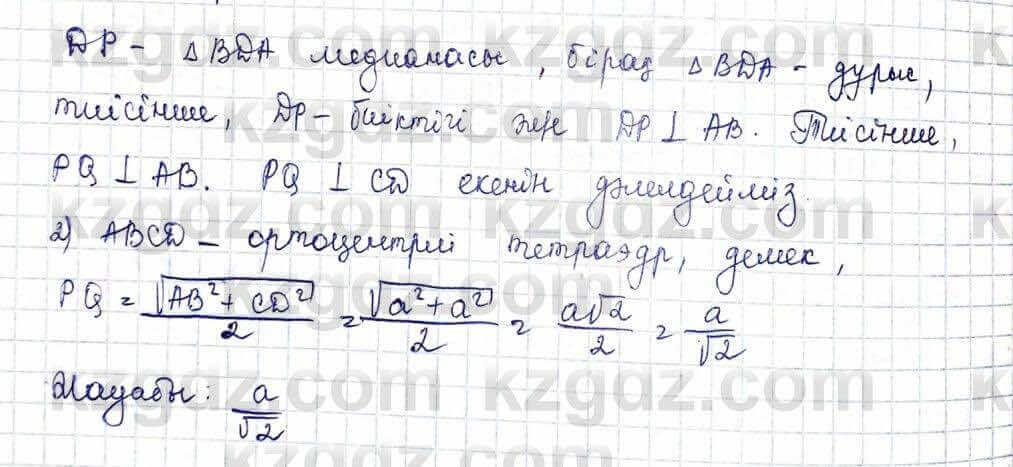 DP - △BDA медианасы, бірақ △BDA - дұрыс,
тиісінше, DP - биіктігі және DP ⊥ AB. Тиісінше,
PQ ⊥ AB. PQ ⊥ CD екенін дәлелдейміз.
2) ABCD - ортоцентрлі тетраэдр, демек,
PQ = √(AB²+CD²)/2 = √(a²+a²)/2 = a√2/2 = a/√2
Жауабы: a/√2
kzgdz.com